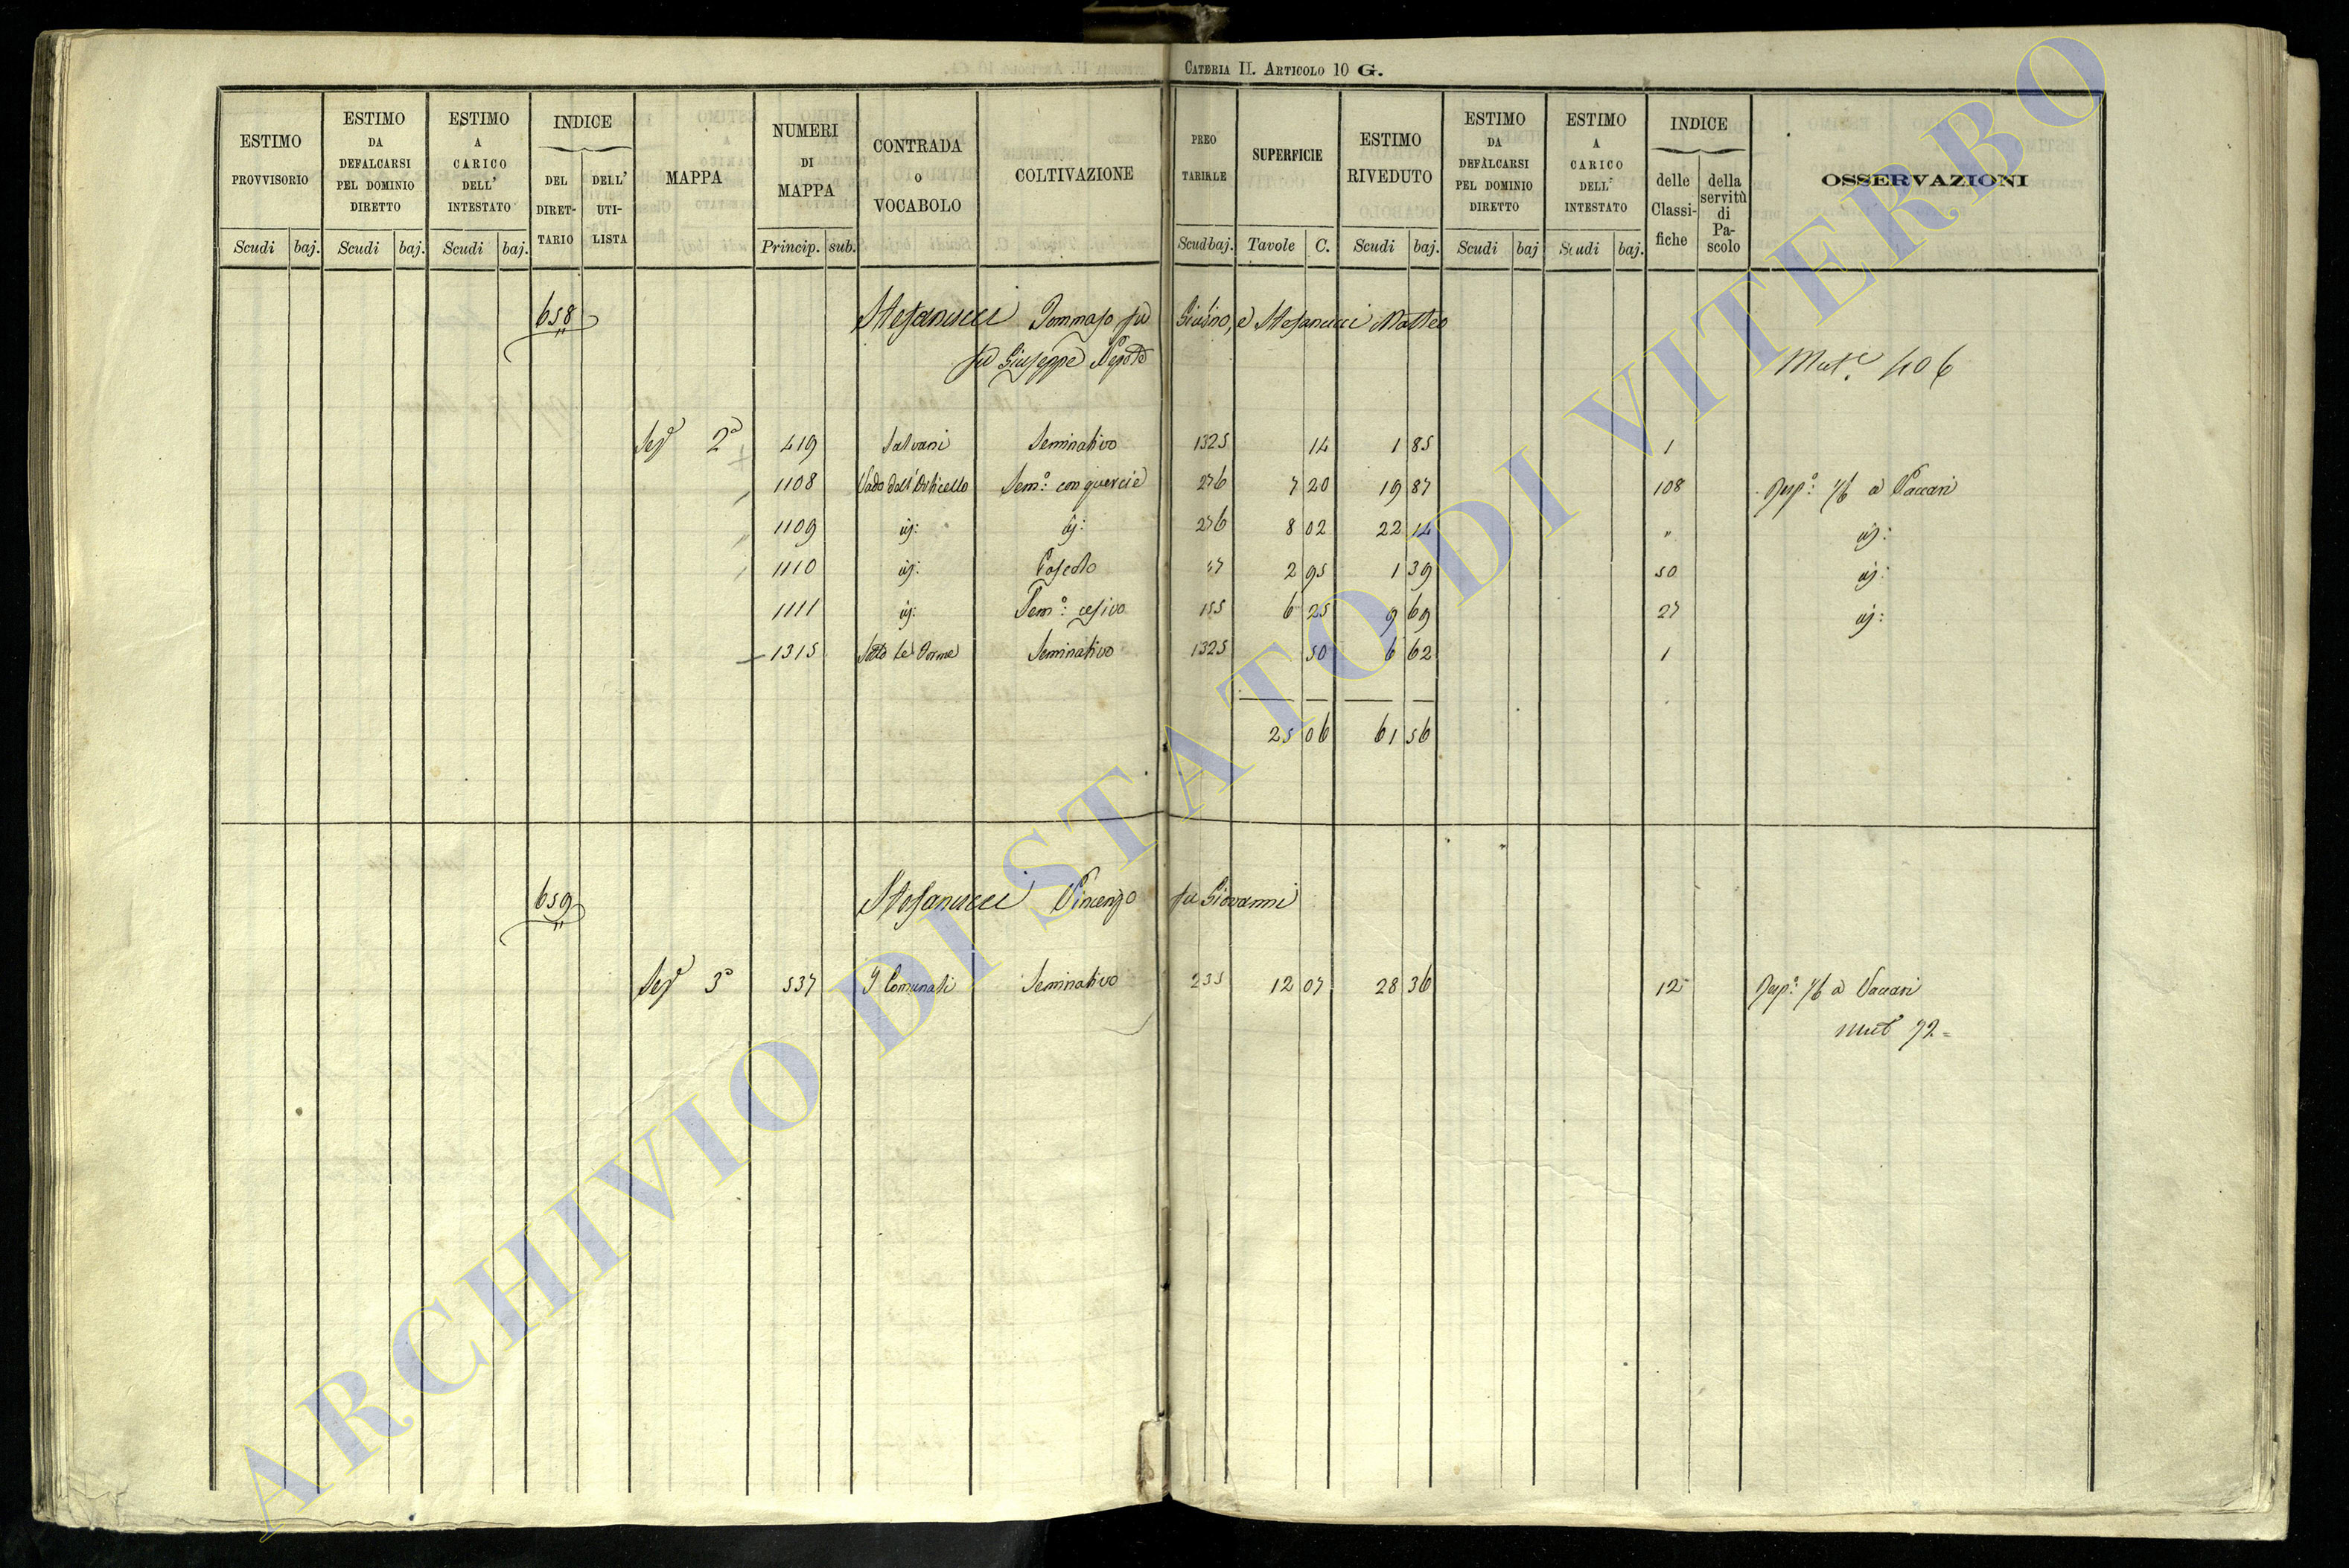 CATERIA II. ARTICOLO 10 G.
ESTIMO PROVVISORIO
ESTIMO DA DEFALCARSI PEL DOMINIO DIRETTO
ESTIMO A CARICO DELL' INTESTATO
INDICE
DEL DIRET-TARIO
DELL' UTI-LISTA
MAPPA
NUMERI DI MAPPA
CONTRADA O VOCABOLO
COLTIVAZIONE
PREO TARIKLE
SUPERFICIE
ESTIMO RIVEDUTO
ESTIMO DA DEFALCARSI PEL DOMINIO DIRETTO
ESTIMO A CARICO DELL' INTESTATO
INDICE
delle Classi-fiche
della servitù di Pa-scolo
OSSERVAZIONI
Scudi baj. Scudi baj. Scudi baj. Princip. sub. Scudbaj. Tavole C. Scudi baj. Scudi baj Scudi baj.
658 Stefanucci Tommaso fu Giusino, e Stefanucci Matteo
fu Giuseppe Nepote
Mut.e 406
Sez.e 2a 419 Salvani Seminativo 1325 14 1 85 1
1108 Vado dell'Orticello Sem.o con quercie 276 7 20 19 87 108 Risp.o 1/6 a Vaccari
1109 id: id: 276 8 02 22 14 " id:
1110 id: Pascolo 47 2 95 1 39 50 id:
1111 id: Sem.o cesivo 155 6 25 9 69 27 id:
1315 Sotto le Seminativo 1325 50 6 62 1
25 06 61 56
659 Stefanucci Vincenzo fu Giovanni
Sez.e 3a 537 I Comunali Seminativo 235 12 07 28 36 12 Risp.o 1/6 a Vaccari
mut.e 72=
ARCHIVIO DI STATO DI VITERBO